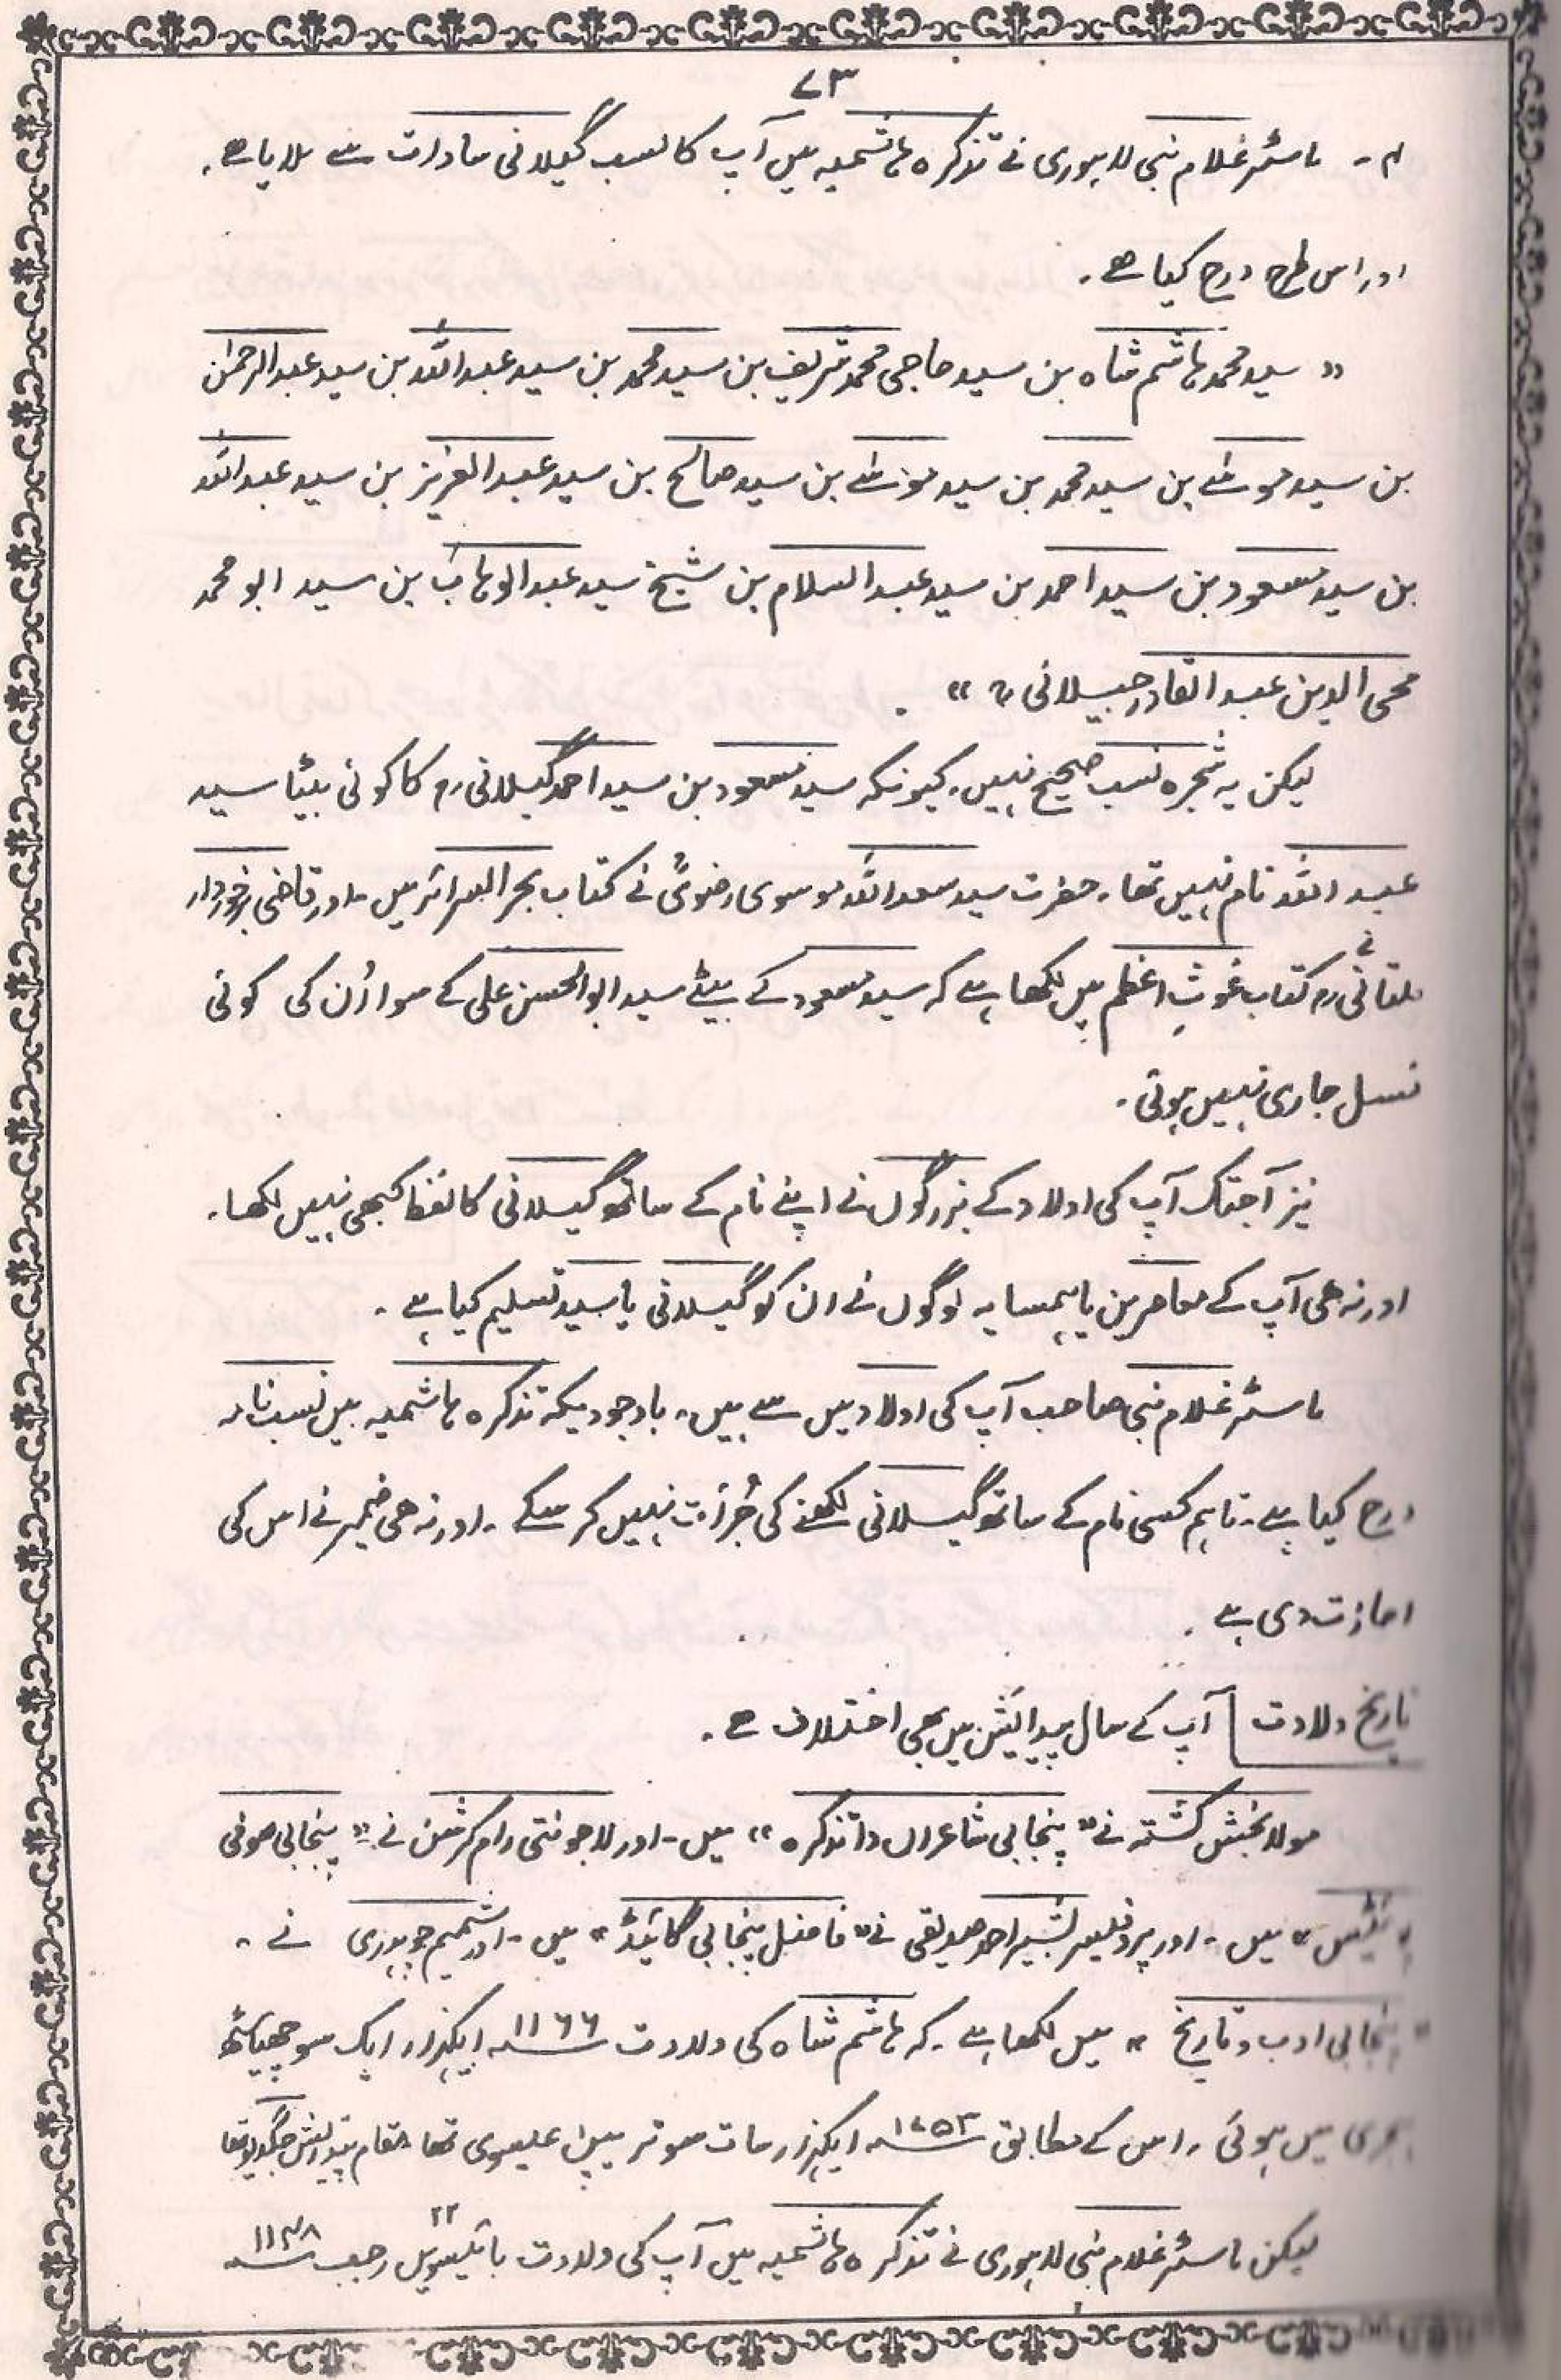 ۷۳
۴- ماسٹر غلام نبی لاہوری نے تذکرہ ہاشمیہ میں آپ کا نسب گیلانی سادات سے ملایا ہے۔
اور اس طرح درج کیا ہے۔
" سید محمد ہاشم شاہ بن سید حاجی محمد شریف بن سید محمد بن سید عبد اللہ بن سید عبد الرحمٰن
بن سید موسیٰ بن سید محمد بن سید موسیٰ بن سید صالح بن سید عبد العزیز بن سید عبد اللہ
بن سید مسعود بن سید احمد بن سید عبد السلام بن شیخ سید عبد الوہاب بن سید ابو محمد
محی الدین عبد القادر جیلانی رح "۔
لیکن یہ شجرہ نسب صحیح نہیں۔ کیونکہ سید مسعود بن سید احمد گیلانی رح کا کوئی بیٹا سید
عبد اللہ نام نہیں تھا۔ حضرت سید سعد اللہ موسوی رضوی نے کتاب بحر السرائر میں۔ اور قاضی برخوردار
ملتانی رح نے کتاب غوثِ اعظم میں لکھا ہے کہ سید مسعود کے بیٹے سید ابو الحسن علی کے سوا اُن کی کوئی
نسل جاری نہیں ہوئی۔
نیز آجتک آپ کی اولاد کے بزرگوں نے اپنے نام کے ساتھ گیلانی کا لفظ کبھی نہیں لکھا۔
اور نہ ھی آپ کے معاصرین یا ہمسایہ لوگوں نے ان کو گیلانی یا سید تسلیم کیا ہے۔
ماسٹر غلام نبی صاحب آپ کی اولاد میں سے ہیں۔ باوجودیکہ تذکرہ ہاشمیہ میں نسب نامہ
درج کیا ہے۔ تاہم کسی نام کے ساتھ گیلانی لکھنے کی جُرأت نہیں کر سکے۔ اور نہ ھی ضمیر نے اس کی
اجازت دی ہے۔
تاریخ ولادت آپ کے سال پیدائش میں بھی اختلاف ہے۔
مولا بخش کشتہ نے " پنجابی شاعراں دا تذکرہ " میں۔ اور لاجونتی رام کرشن نے " پنجابی صوفی
پوئٹس " میں۔ اور پروفیسر بشیر احمد صدیقی نے " فاضل پنجابی گائیڈ " میں۔ اور شمیم چوہدری نے۔
" پنجابی ادب و تاریخ " میں لکھا ہے۔ کہ ہاشم شاہ کی ولادت ۱۱۶۶ھ ایکہزار ایک سو چھیاسٹھ
ہجری میں ہوئی۔ اس کے مطابق ۱۷۵۳ء ایکہزار سات سو تریپن عیسوی تھا مقام پیدائش جگدیو تھا
لیکن ماسٹر غلام نبی لاہوری نے تذکرہ ہاشمیہ میں آپ کی ولادت بائیسویں ۲۲ رجب ۱۱۴۸ھ